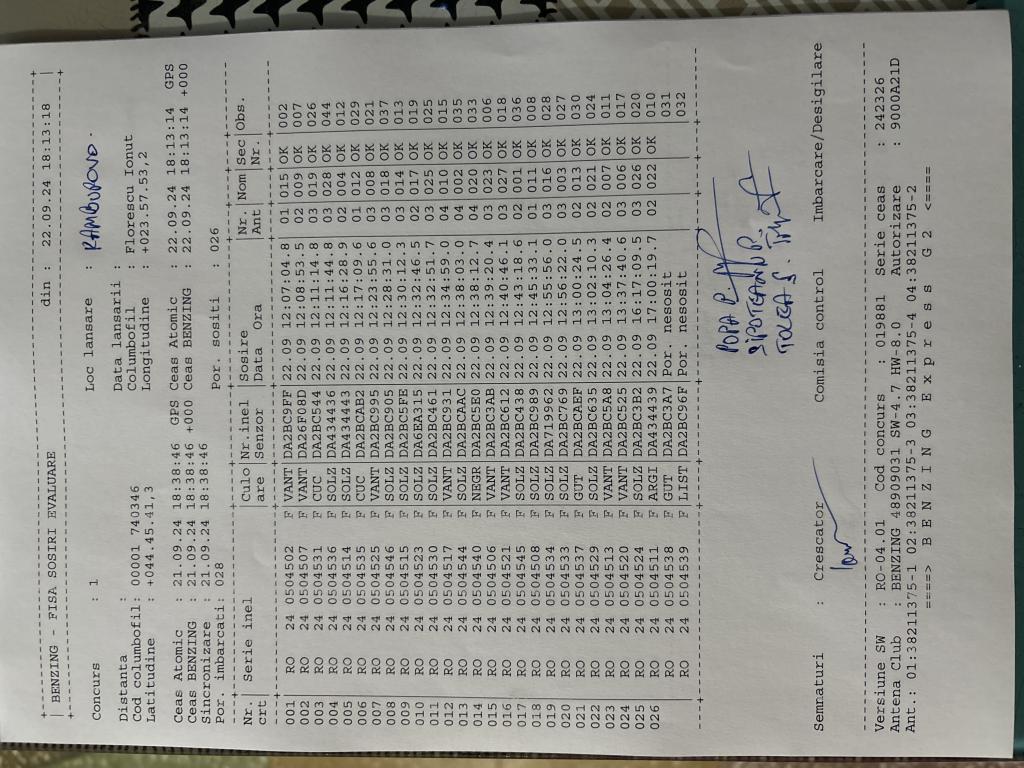 BENZING - FISA SOSIRI EVALUARE din : 22.09.24 18:13:18
concurs : 1 Loc lansare : RAMBUROVO.
Distanta : Data lansarii :
Cod columbofil: 00001 740346 Columbofil : Florescu Ionut
Latitudine : +044.45.41,3 Longitudine : +023.57.53,2
Ceas Atomic : 21.09.24 18:38:46 GPS Ceas Atomic : 22.09.24 18:13:14 GPS
Ceas BENZING : 21.09.24 18:38:46 +000 Ceas BENZING : 22.09.24 18:13:14 +000
Sincronizare : 21.09.24 18:38:46
Por. imbarcati: 028 Por. sositi : 026
Nr. | Serie inel | Culo | Nr.inel | Sosire | Nr. | Nom | Sec | Obs.
crt | are | Senzor | Data Ora | Ant | Nr. |
001 RO 24 0504502 F VANT DA2BC9FF 22.09 12:07:04.8 01 015 OK 002
002 RO 24 0504507 F VANT DA26F08D 22.09 12:08:53.5 02 009 OK 007
003 RO 24 0504531 F CUC DA2BC544 22.09 12:11:14.8 03 019 OK 026
004 RO 24 0504536 F SOLZ DA434436 22.09 12:11:44.8 03 028 OK 044
005 RO 24 0504514 F SOLZ DA434443 22.09 12:16:28.9 02 004 OK 012
006 RO 24 0504535 F CUC DA2BCAB2 22.09 12:17:09.6 01 012 OK 029
007 RO 24 0504525 F VANT DA2BC995 22.09 12:23:55.6 03 008 OK 021
008 RO 24 0504546 F SOLZ DA2BC905 22.09 12:28:31.0 03 018 OK 037
009 RO 24 0504515 F SOLZ DA2BC5FE 22.09 12:30:12.3 03 014 OK 013
010 RO 24 0504523 F SOLZ DA6EA315 22.09 12:32:46.5 02 017 OK 019
011 RO 24 0504530 F SOLZ DA2BC461 22.09 12:32:51.7 03 025 OK 025
012 RO 24 0504517 F VANT DA2BC931 22.09 12:34:59.0 04 010 OK 015
013 RO 24 0504544 F SOLZ DA2BCAAC 22.09 12:38:03.0 04 002 OK 035
014 RO 24 0504540 F NEGR DA2BC5E0 22.09 12:38:12.7 04 020 OK 033
015 RO 24 0504506 F VANT DA2BC3AB 22.09 12:39:20.4 03 023 OK 006
016 RO 24 0504521 F VANT DA2BC612 22.09 12:40:46.1 03 027 OK 018
017 RO 24 0504545 F SOLZ DA2BC438 22.09 12:43:18.6 02 001 OK 036
018 RO 24 0504508 F SOLZ DA2BC989 22.09 12:45:33.1 01 011 OK 008
019 RO 24 0504534 F SOLZ DA719962 22.09 12:55:56.0 03 016 OK 028
020 RO 24 0504533 F SOLZ DA2BC769 22.09 12:56:22.0 03 003 OK 027
021 RO 24 0504537 F GUT DA2BCAEF 22.09 13:00:24.5 02 013 OK 030
022 RO 24 0504529 F SOLZ DA2BC635 22.09 13:02:10.3 02 021 OK 024
023 RO 24 0504513 F VANT DA2BC5A8 22.09 13:04:26.4 02 007 OK 011
024 RO 24 0504520 F VANT DA2BC525 22.09 13:37:40.6 03 006 OK 017
025 RO 24 0504524 F SOLZ DA2BC3B2 22.09 16:17:09.5 03 026 OK 020
026 RO 24 0504511 F ARGI DA434439 22.09 17:00:19.7 02 022 OK 010
RO 24 0504538 F GUT DA2BC3A7 Por. nesosit 031
RO 24 0504539 F LIST DA2BC96F Por. nesosit 032
POPA P.
TOLEA S.
Semnaturi : Crescator Comisia control Imbarcare/Desigilare
Versiune SW : RO-04.01 Cod concurs : 019881 Serie ceas : 242326
Antena Club : BENZING 48909031 SW-4.7 HW-8.0 Autorizare : 9000A21D
Ant.: 01:38211375-1 02:38211375-3 03:38211375-4 04:38211375-2
====> B E N Z I N G E x p r e s s G 2 <====